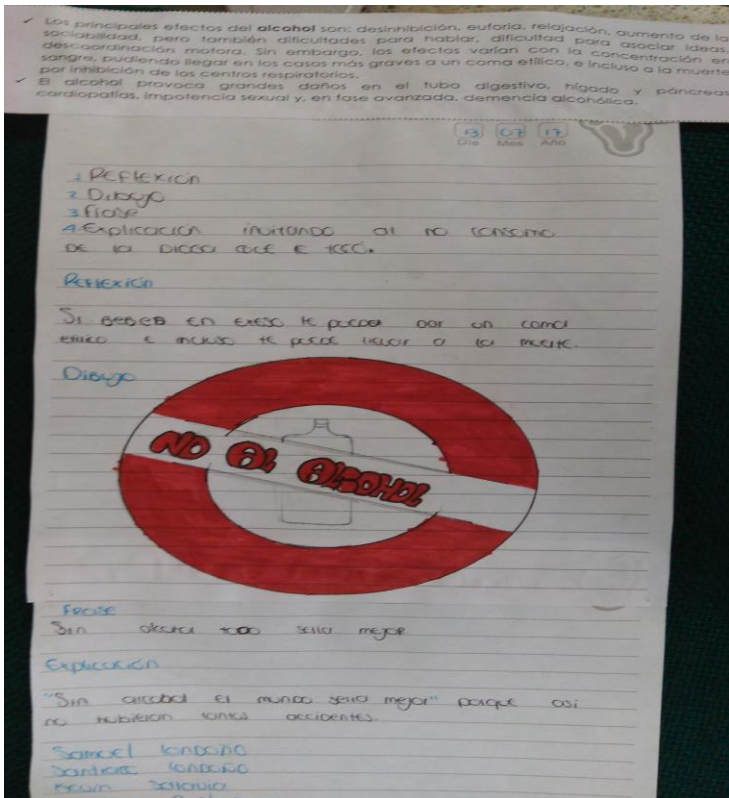 ✓ Los principales efectos del alcohol son: desinhibición, euforia, relajación, aumento de la
sociabilidad, pero también dificultades para hablar, dificultad para asociar ideas,
descoordinación motora. Sin embargo, los efectos varían con la concentración en
sangre, pudiendo llegar en los casos más graves a un coma etílico, e incluso a la muerte
por inhibición de los centros respiratorios.
✓ El alcohol provoca grandes daños en el tubo digestivo, hígado y páncreas
cardiopatías, impotencia sexual y, en fase avanzada, demencia alcohólica.
13 07 17
Día Mes Año
1 Reflexión
2 Dibujo
3 frase
4 Explicación invitando al no consumo
DE la DROGA QUE E
Reflexión
Si BEBES en exeso te puede dar un coma
etilico e incluso te puede llevar a la muerte.
Dibujo
NO AL ALCOHOL
Frase
Sin alcohol todo seria mejor
Explicación
"Sin alcohol el mundo seria mejor" porque asi
no hubieran tantos accidentes.
Samuel londoño
Santiago londoño
Kevin